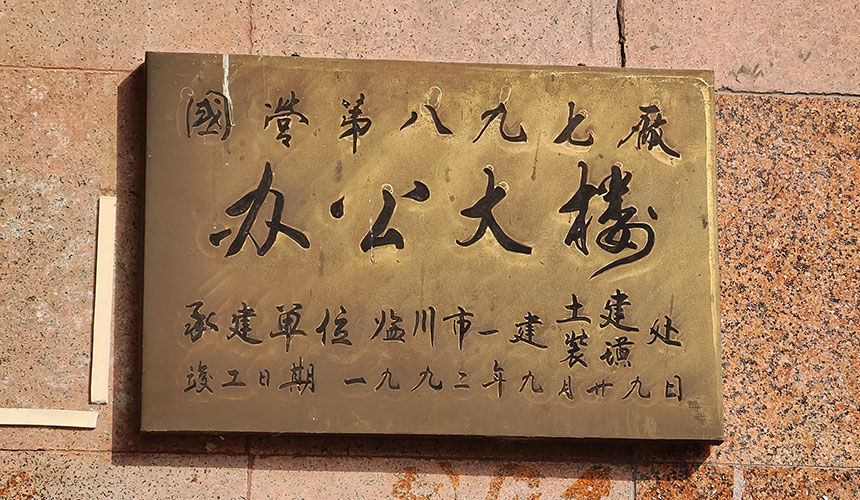 國营第八九七厰
办公大楼
承建单位 临川市一建土建装璜处
竣工日期 一九九二年九月廿九日